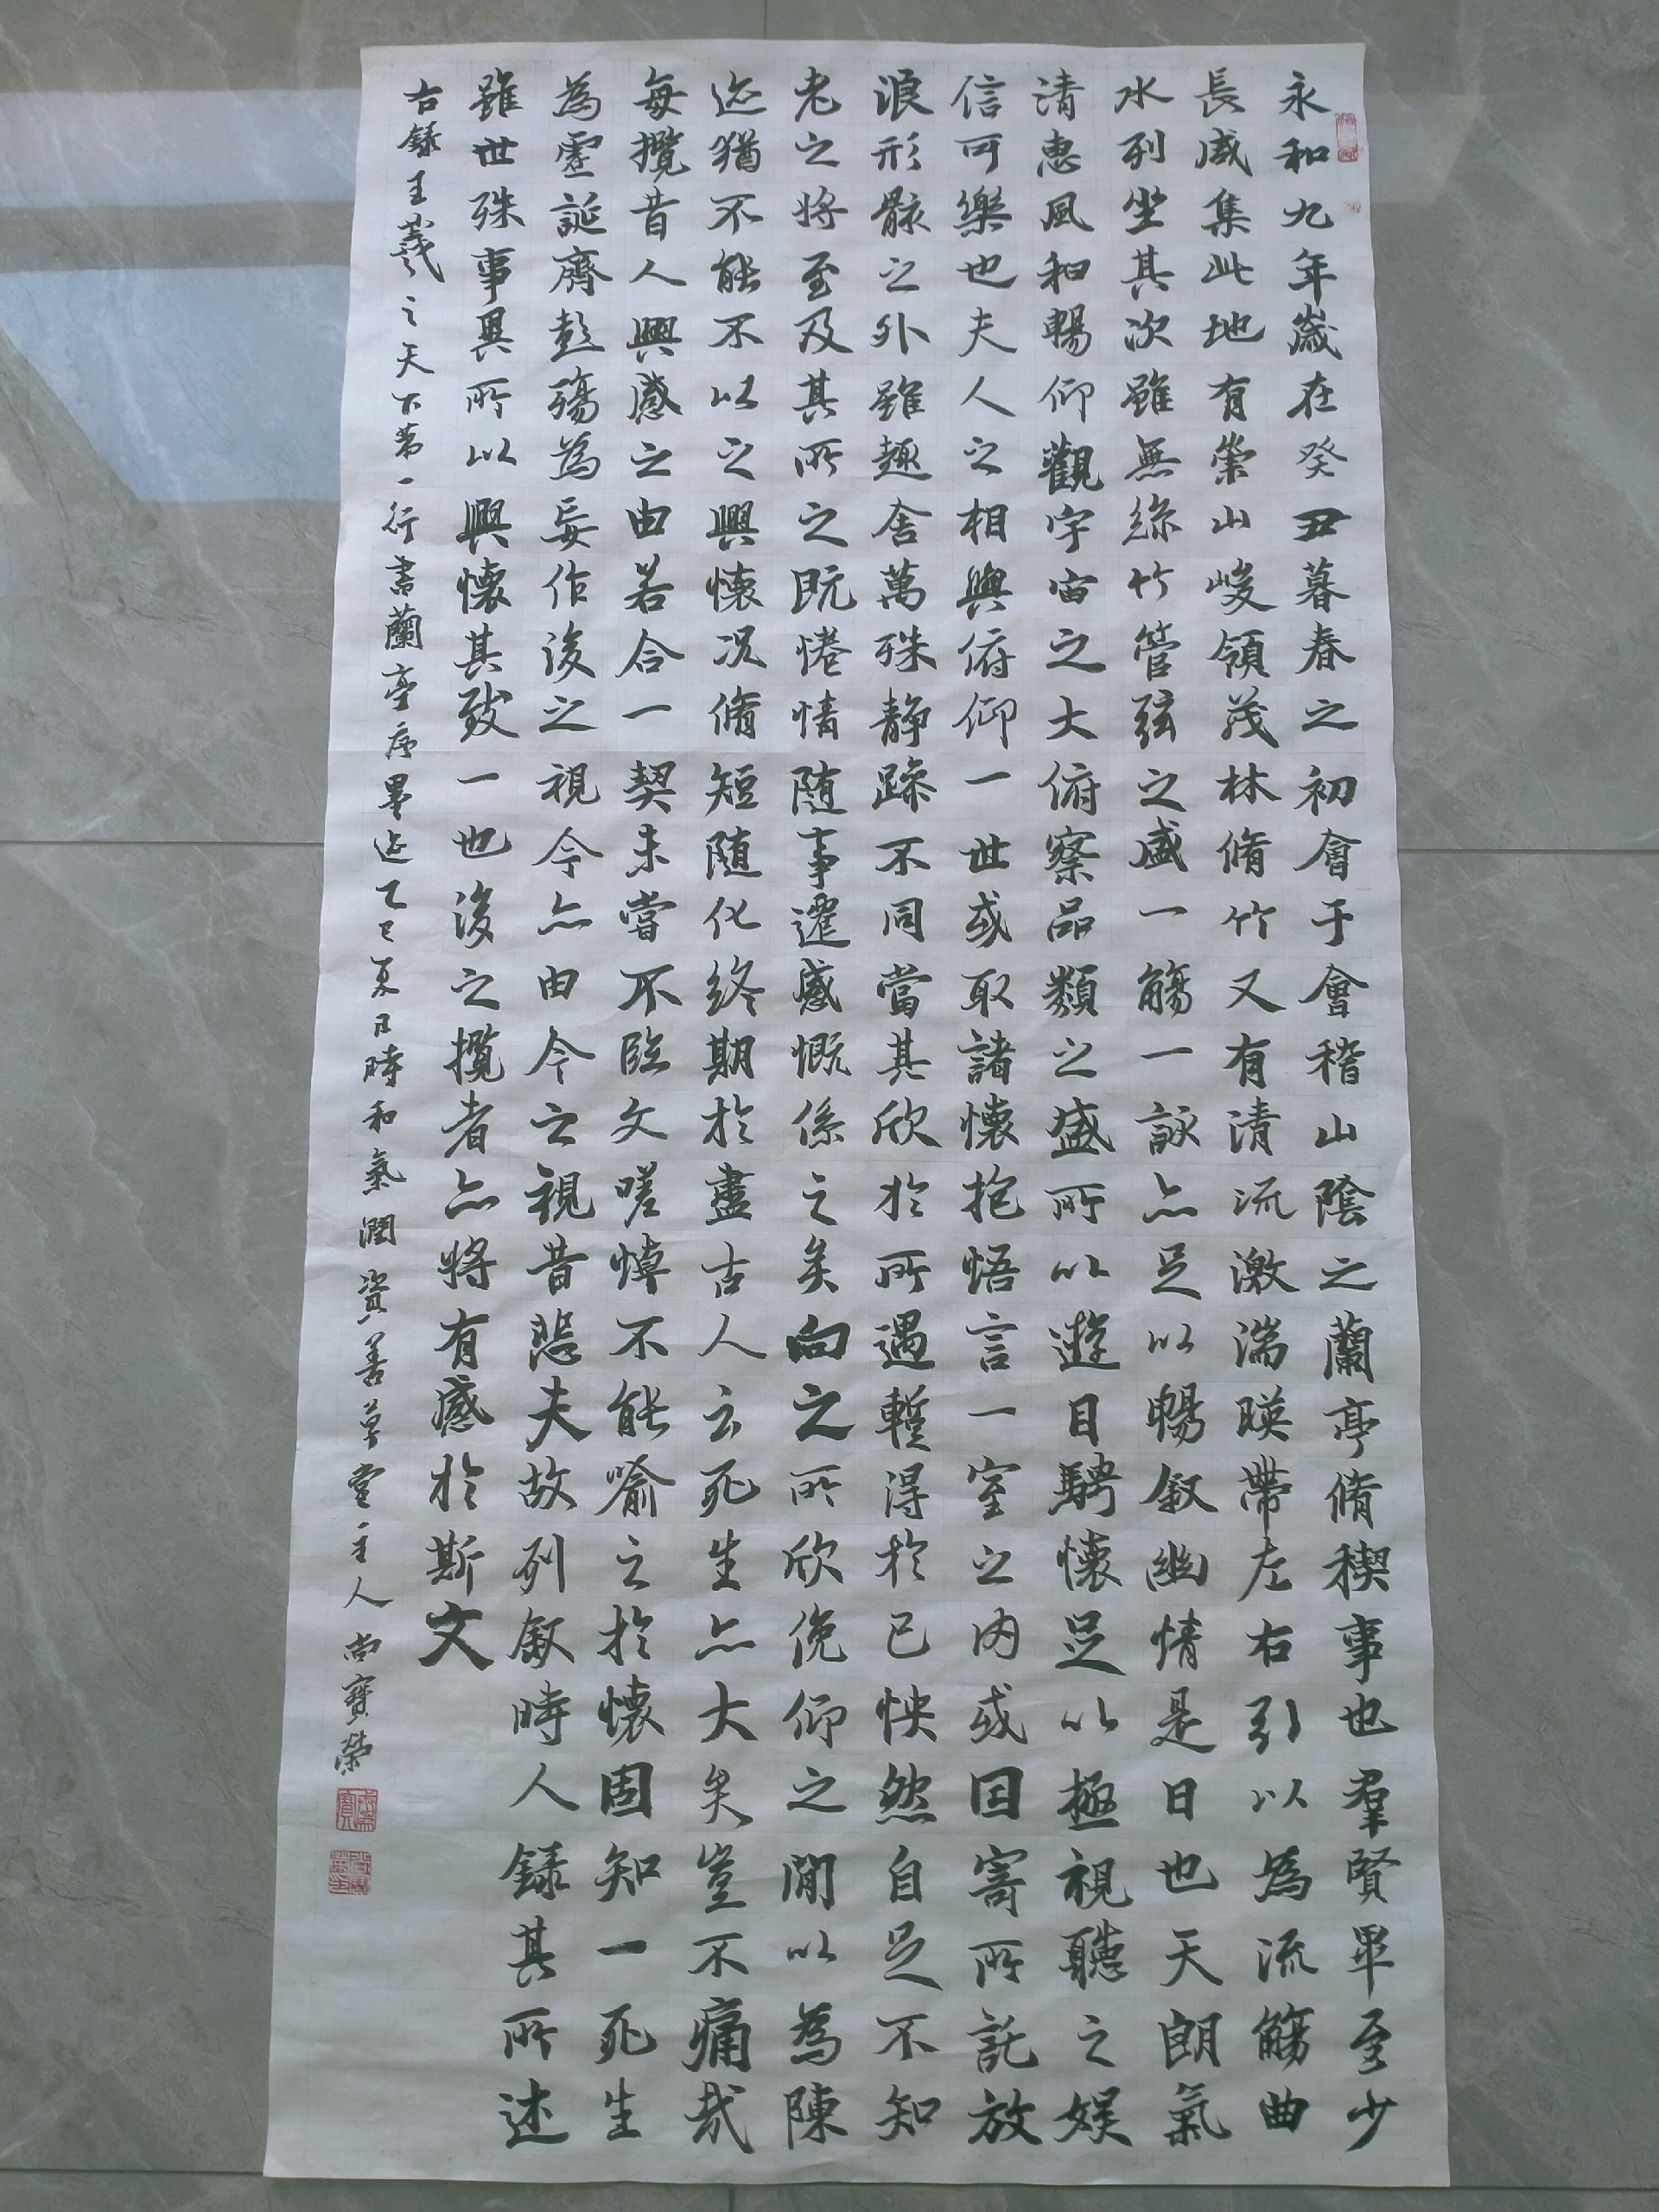 永和九年歲在癸丑暮春之初會于會稽山陰之蘭亭脩稧事也羣賢畢至少
長咸集此地有崇山峻領茂林脩竹又有清流激湍暎帶左右引以為流觴曲
水列坐其次雖無絲竹管弦之盛一觴一詠亦足以暢叙幽情是日也天朗氣
清惠風和暢仰觀宇宙之大俯察品類之盛所以遊目騁懷足以極視聽之娛
信可樂也夫人之相與俯仰一世或取諸懷抱悟言一室之內或因寄所託放
浪形骸之外雖趣舍萬殊静躁不同當其欣於所遇蹔得於己怏然自足不知
老之將至及其所之既惓情随事遷感慨係之矣向之所欣俛仰之間以為陳
迹猶不能不以之興懷況脩短隨化終期於盡古人云死生亦大矣豈不痛哉
每攬昔人興感之由若合一契未嘗不臨文嗟悼不能喻之於懷固知一死生
為虛誕齊彭殤為妄作後之視今亦由今之視昔悲夫故列敘時人錄其所述
雖世殊事異所以興懷其致一也後之攬者亦將有感於斯文
右錄王羲之天下第一行書蘭亭序墨迹乙巳夏日時和氣潤資善草堂主人尚寶榮